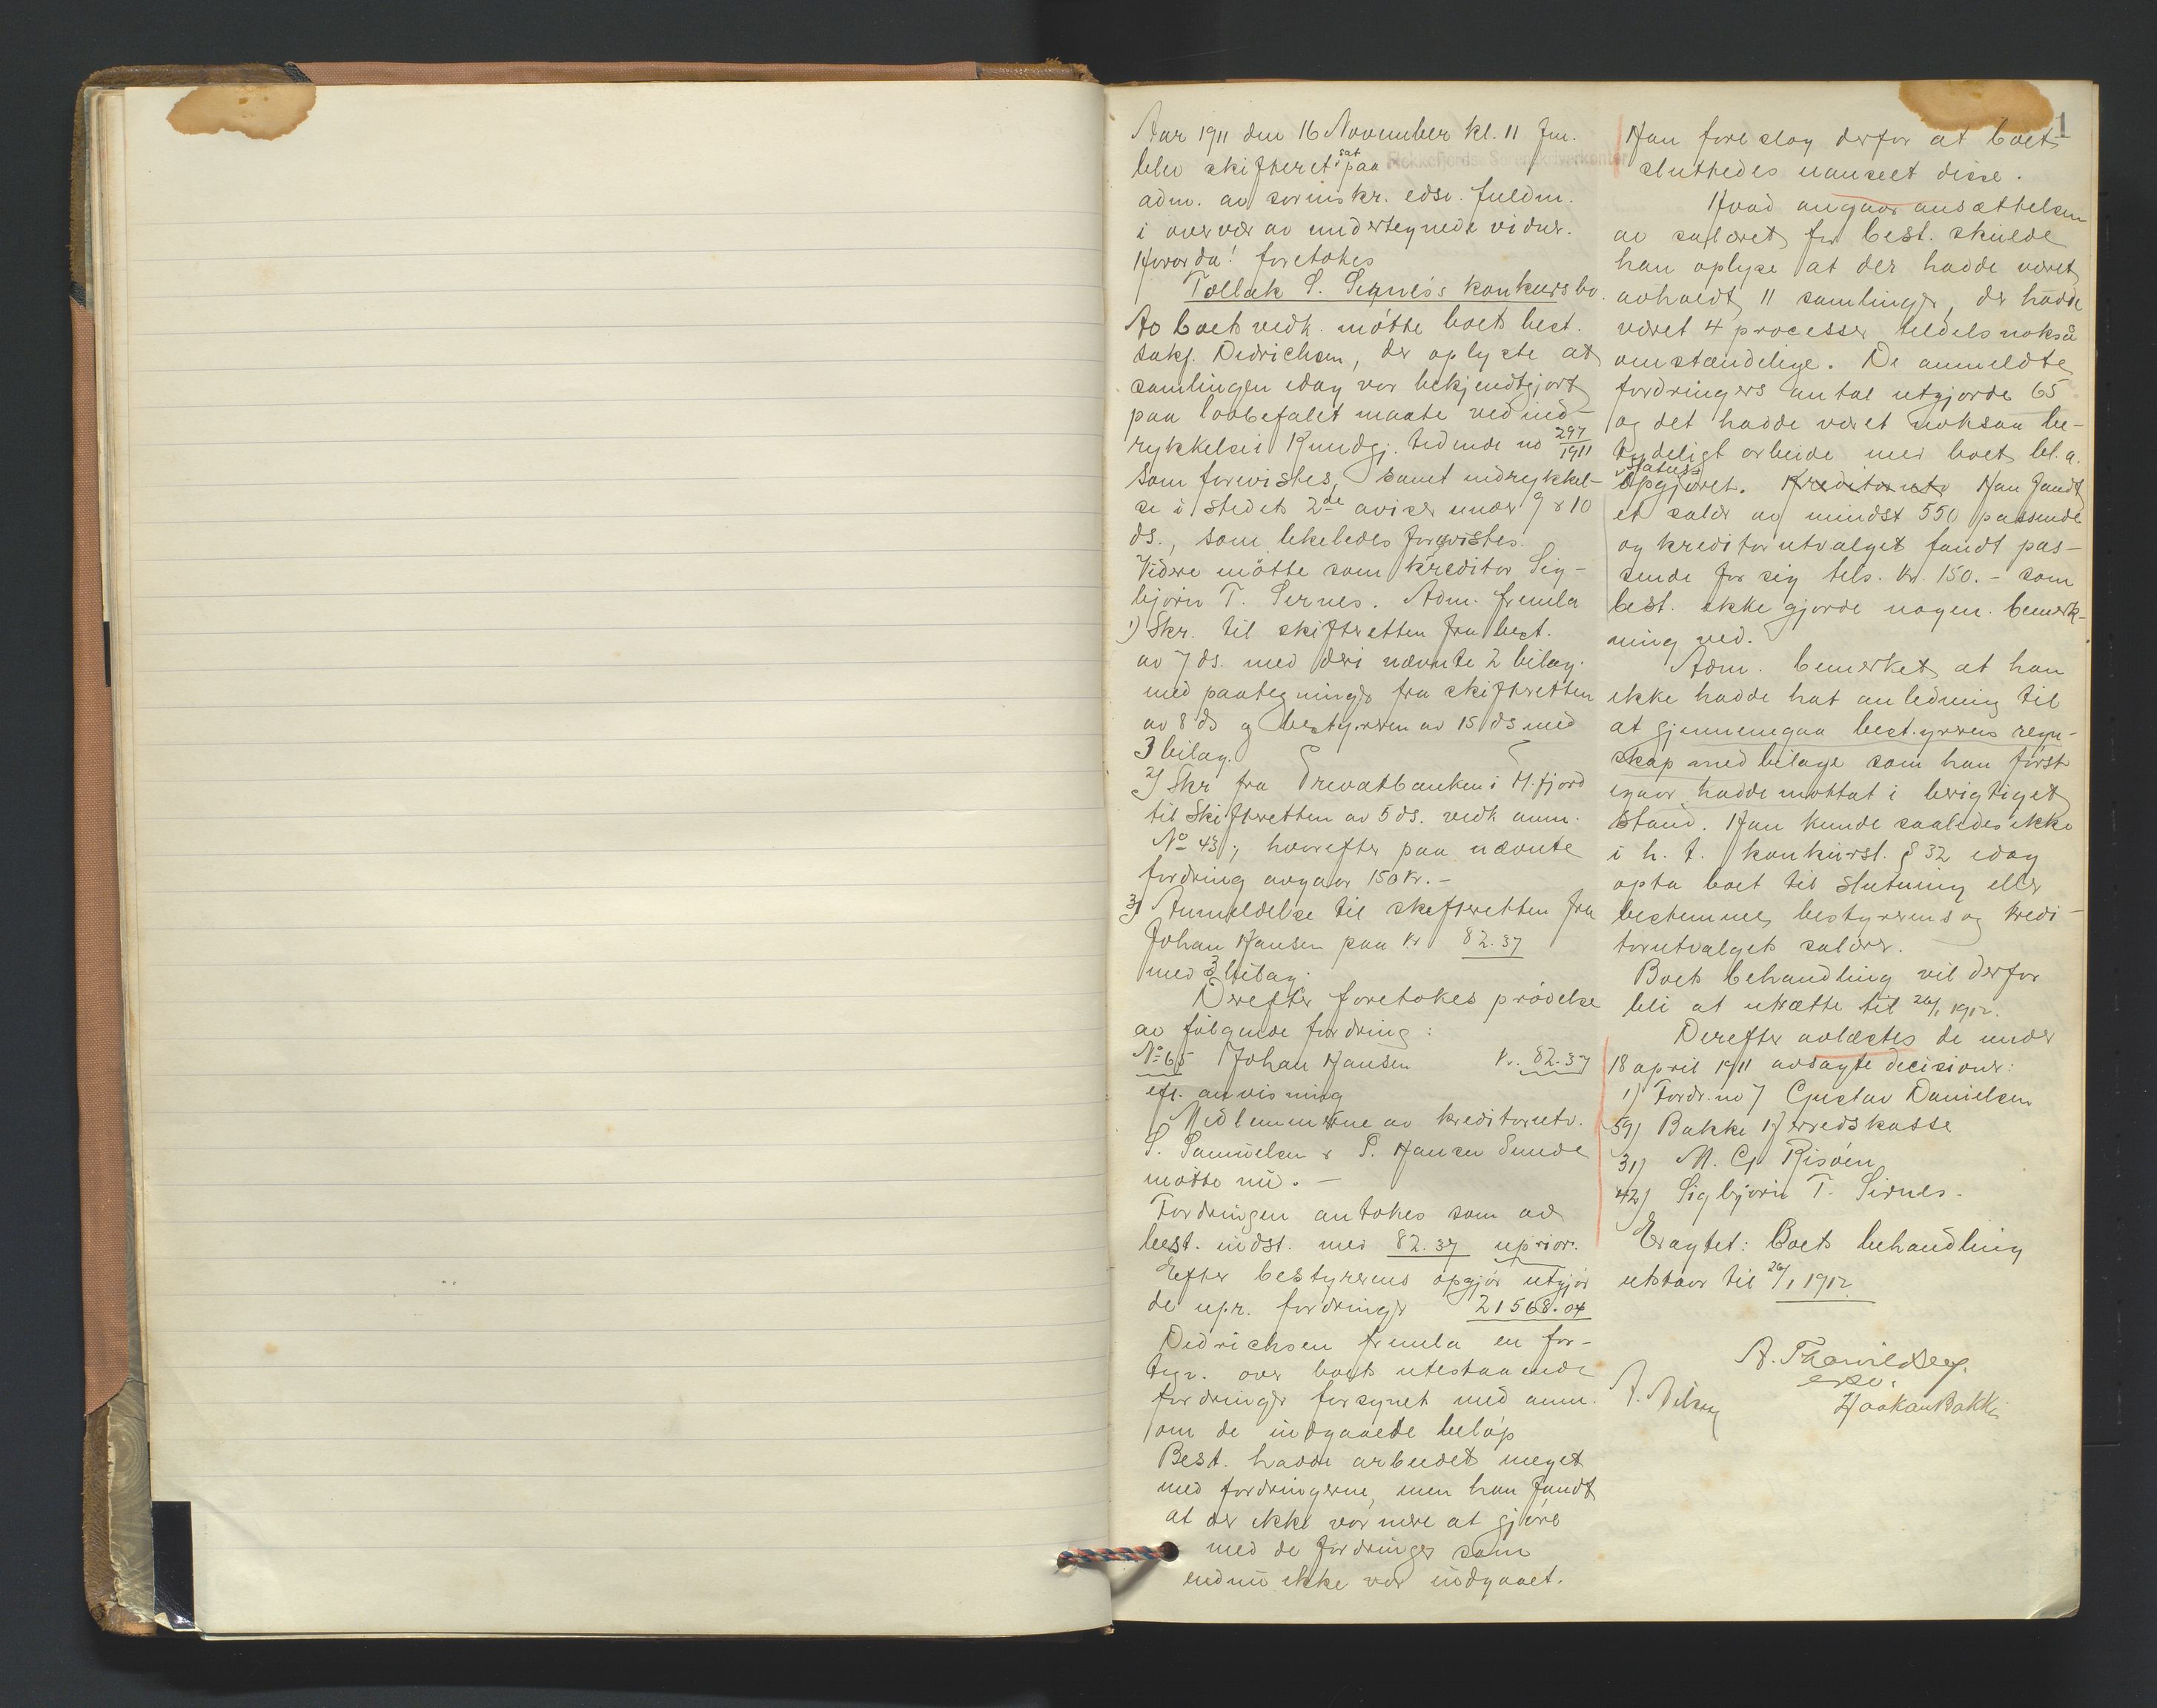 1
Aar 1911 den 16 November kl. 11 fm.
blev skifteret sat paa Flekkefjords Sorenskriverkontor
adm. av sorinskr. edsv. fuldm.
i overvær av undertegnede vidner.
Hvorda! foretokes
Tollak S. Sernes's konkursbo.
Av boets vedk. møtte boets best.
sakf. Didrichsen, der oplyste at
samlingen idag var bekjendtgjort
paa lovbefalet maate ved ind-
rykkelse i Kundgj. tidende no 297/1911
som forevistes, samt indrykkel-
se i stedets 2de aviser under 9 & 10
ds., som likeledes forevistes.
Videre møtte som kreditor Sig-
bjørn T. Sernes. Adm. fremla
1) Skr. til skifteretten fra best.
av 7 ds. med deri nævnte 2 bilag.
med paategninger fra skifteretten
av 8 ds og bestyreren av 15 ds med
3 bilag.
2) Skr fra Privatbanken i F.fjord
til Skifteretten av 5 ds. vedk anm.
No 43, hvorefter paa nævnte
fordring avgaar 150 kr. -
3) Anmeldelse til skifteretten fra
Johan Hansen paa kr 82.37
med 3 bilag.
Derefter foretokes prøvelse
av følgende fordring:
No 65 Johan Hansen kr. 82.37
eft. anvisning
Medlemmerne av kreditorutv.
S. Samuelsen & P. Hansen Sunde
møtte nu. -
Fordringen antokes som av
best. indst. med 82.37 uprior.
Efter bestyrerens opgjør utgjør
de upr. fordringer 21568.04
Didrichsen fremla en for-
tegn. over boets utestaaende
fordringer forsynet med anm.
om de indgaaede beløp
Best. hadde arbeidet meget
med fordringerne, men han fandt
at der ikke var mere at gjøre
med de fordringer som
endnu ikke var indgaaet.
Han foreslog derfor at boet
sluttedes uanseet disse.
Hvad angaar ansættelsen
av salæret for best. skulde
han oplyse at der hadde været
avholdt 11 samlinger, der hadde
været 4 processer tildels nokså
omstændelige. De anmeldte
fordringers antal utgjorde 65
og det hadde været noksaa be-
tydeligt arbeide med boet, bl.a.
status
opgjøret. Kreditorutv Han fandt
et salær av mindst 550 passende
og kreditorutvalget fandt pas-
sende for sig tils. kr. 150.- som
best. ikke gjorde nogen bemerk-
ning ved.
Adm. bemerket at han
ikke hadde hat anledning til
at gjennemgaa bestyrerens regn-
skap med bilage som han først
igaar hadde mottat i berigtiget
stand. Han kunde saaledes ikke
i h. t. konkursl. § 32 idag
opta boet til slutning eller
bestemme bestyrerens og kredi-
torutvalgets salær.
Boets behandling vil derfor
bli at utsætte til 26/1 1912.
Derefter avlæstes de under
18 april 1911 avsagte decisioner:
1) Fordr. no 7 Gustav Danielsen
59) Bakke Herredskasse
31) M. G. Risøen
42) Sigbjørn T. Sirnes.
Eragtet: Boets behandling
utstaar til 26/1 1912.
A. Thorvildsen
edsv.
Haakon Bakke